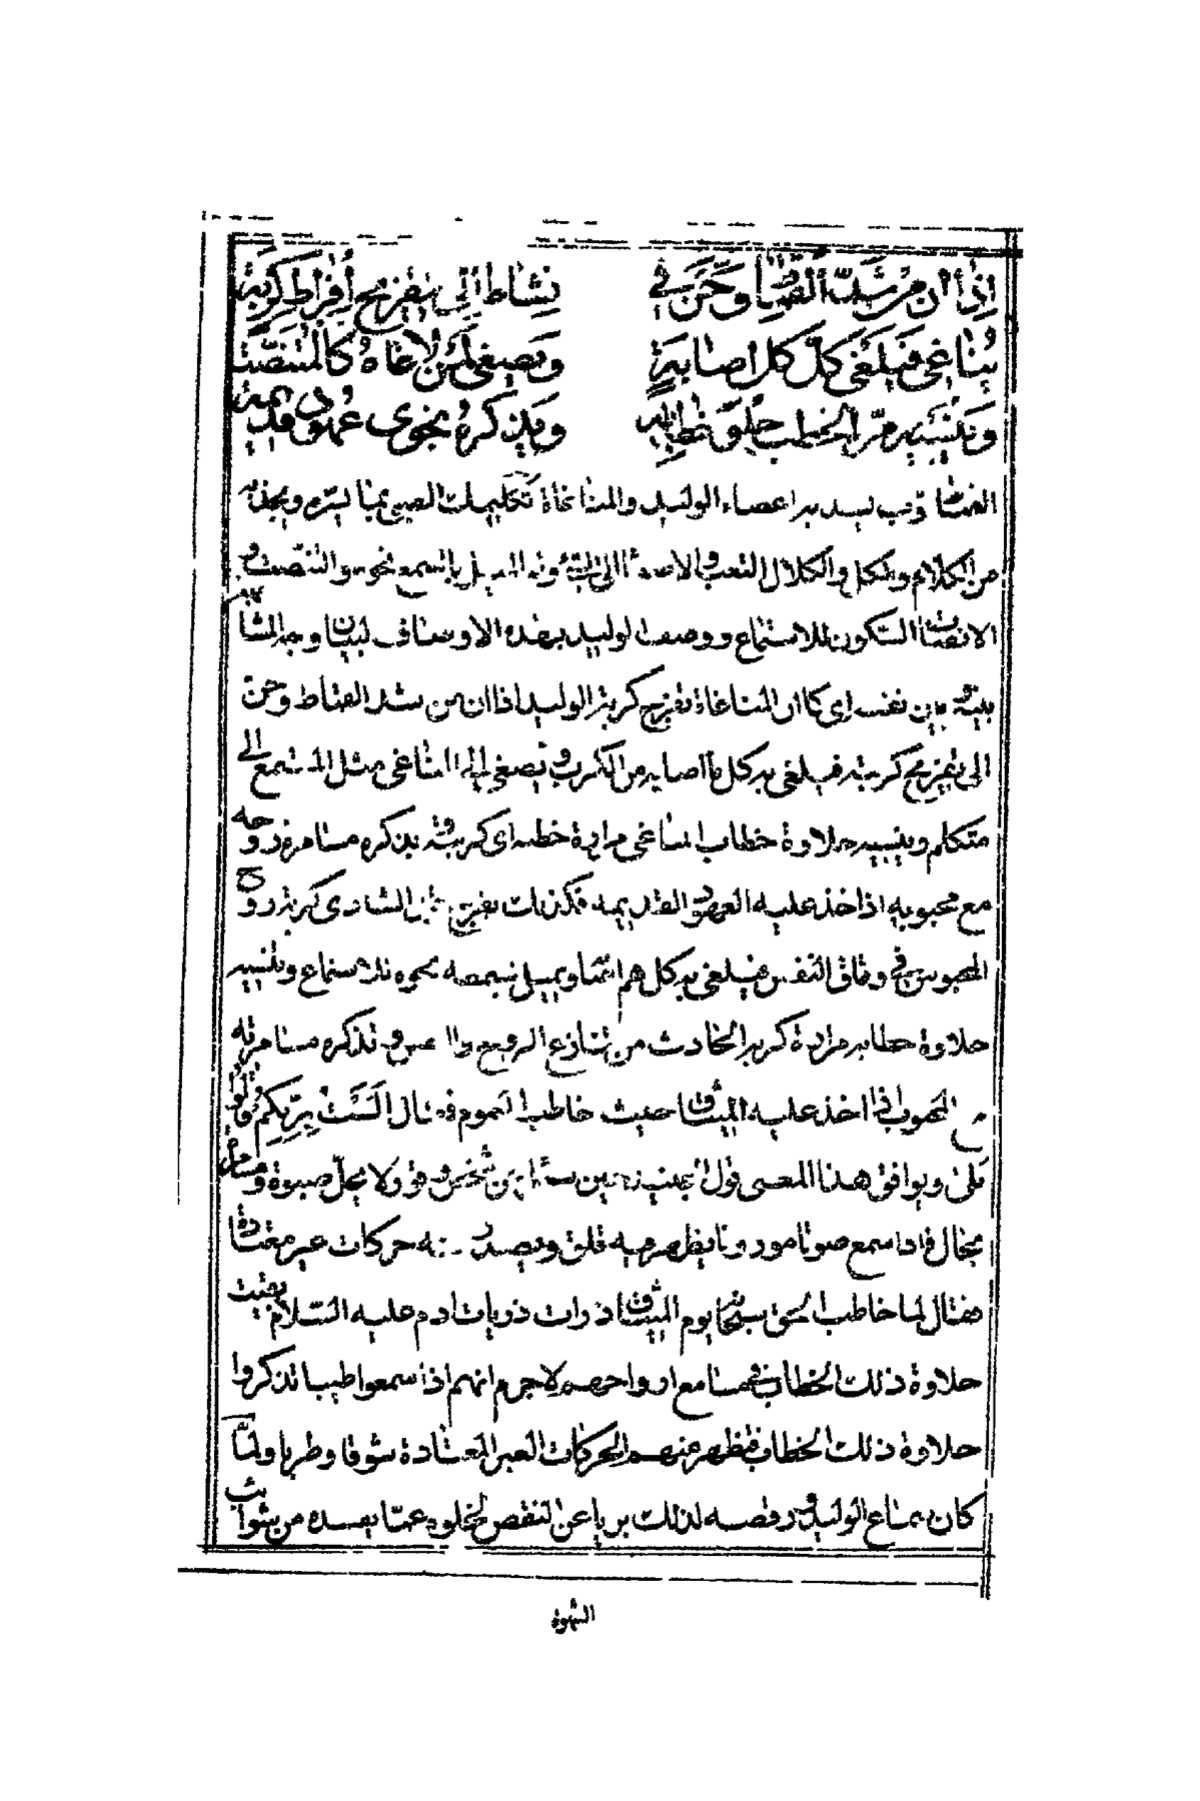 اِذا اَنَّ مِنْ شَدِّ القِماطِ وَحَنَّ في نَشاطٍ اِلى تَفْريجِ اِفْراطِ كُرْبَةِ
يُناغى فَيُلْغى كُلَّ كَلٍّ اَصابَهُ وَيُصْغى لِمَنْ ناغاهُ كَالْمُتَنَصِّتِ
وَيُنْسيهِ مُرَّ الخَطْبِ حُلْوُ خِطابِهِ وَيُذْكِرُهُ نَجْوى عُهُودٍ قَديمَةِ
القماط ثوب يشد به اعضاء الوليد والمناغاة تكليمك الصبي بما يسره ويجذبه
من الكلام والكل والكلال التعب والاصغاء الى الشيء الميل بالسمع نحوه والتنصت و
الانصات السكون للاستماع ووصف الوليد بهذه الاوصاف لبيان وجه المشابهة
بينه وبين نفسه اى كما ان المناغاة تفرج كربة الوليد اذا ان من شد القماط وحن
الى تفريج كربته فيلغى به كل ما اصابه من الكرب ويصغى الى المناغى مثل المستمع الى
متكلم وينسيه حلاوة خطاب المناغى مرارة خطبه اى كربته ويذكره مسامرة روحه
مع محبوبه اذا اخذ عليه العهود القديمة فكذلك يفرج الشادى كربة روح
المحبوس فى وثاق النفس فيلغى به كل هم ويميل بسمعه نحوه للاستماع وينسيه
حلاوة خطابه مرارة كربه الحادث من تنازع الروح والنفس وتذكره مسامرته
مع المحبوب اذا اخذ عليه الميثاق حيث خاطب العموم فقال اَلَسْتُ بِرَبِّكُمْ قالوا
بَلى ويوافق هذا المعنى قول جنيد حين سئل عن شخص وقور لا يحل صبوة
بحال فاذا سمع صوتا موزونا يظهر فيه قلق ويصدر منه حركات غير معتادة
فقال لما خاطب الحق سبحانه يوم الميثاق ذرات ذريات ادم عليه السلام بقيت
حلاوة ذلك الخطاب فى مسامع ارواحهم لا جرم انهم اذا سمعوا طيبا تذكروا
حلاوة ذلك الخطاب فيظهر منهم الحركات الغير المعتادة شوقا وطربا ولما
كان سماع الوليد ورقصه لذلك بريا عن النقص لخلوه عما يفسده من شوائب
الشهوة